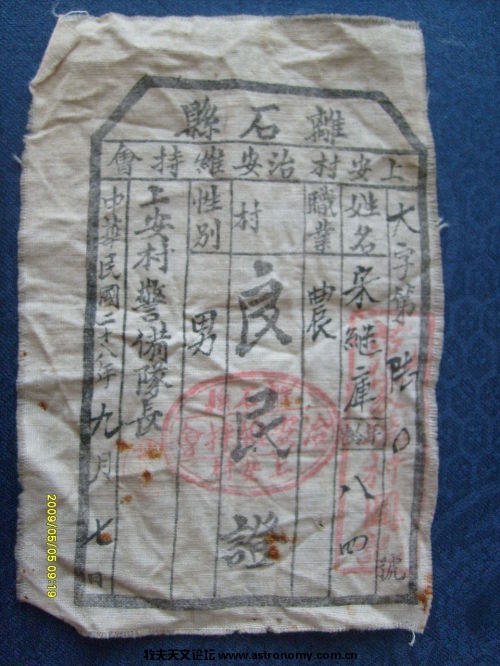 離石縣
上安村治安維持會
大字第 號
姓名 宋繼庫 年齡 八四
職業 農
村 良民證
性別 男
上安村警備隊長
中華民國二十八年九月七日
2009/05/05 09:19
牧夫天文论坛 www.astronomy.com.cn